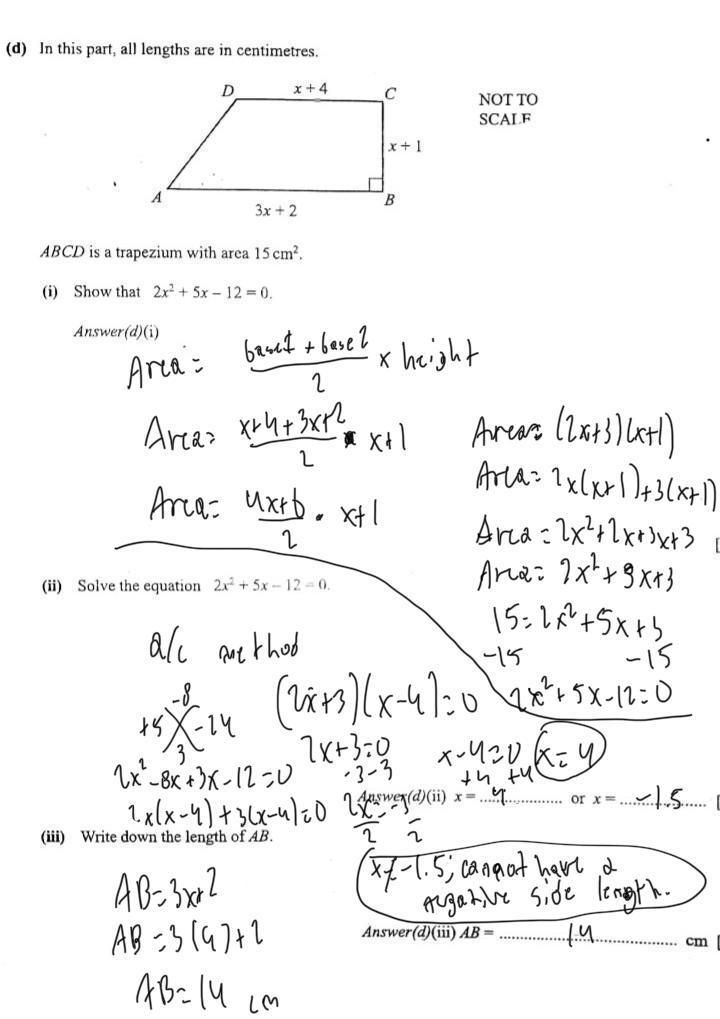 (d) In this part, all lengths are in centimetres.
D x + 4 C
NOT TO
SCALE
x + 1
A B
3x + 2
ABCD is a trapezium with area 15 cm².
(i) Show that 2x² + 5x – 12 = 0.
Answer(d)(i)
Area = base1 + base2 / 2 × height
Area = x+4+3x+2 / 2 • x+1
Area = 4x+6 / 2 • x+1
Area = (2x+3)(x+1)
Area = 2x(x+1)+3(x+1)
Area = 2x²+2x+3x+3
Area = 2x²+5x+3
15 = 2x²+5x+3
-15 -15
2x²+5x-12=0
(ii) Solve the equation 2x² + 5x – 12 = 0.
a/c method
-8
+5 -24
3
2x²-8x+3x-12=0
2x(x-4)+3(x-4)=0
(2x+3)(x-4)=0
2x+3=0
-3 -3
2x=-3
2 2
x-4=0 x=4
+4 +4
Answer(d)(ii) x = 4 or x = -1.5
x≠-1.5; cannot have a
negative side length.
(iii) Write down the length of AB.
AB=3x+2
AB=3(4)+2
AB=14 cm
Answer(d)(iii) AB = 14 cm [